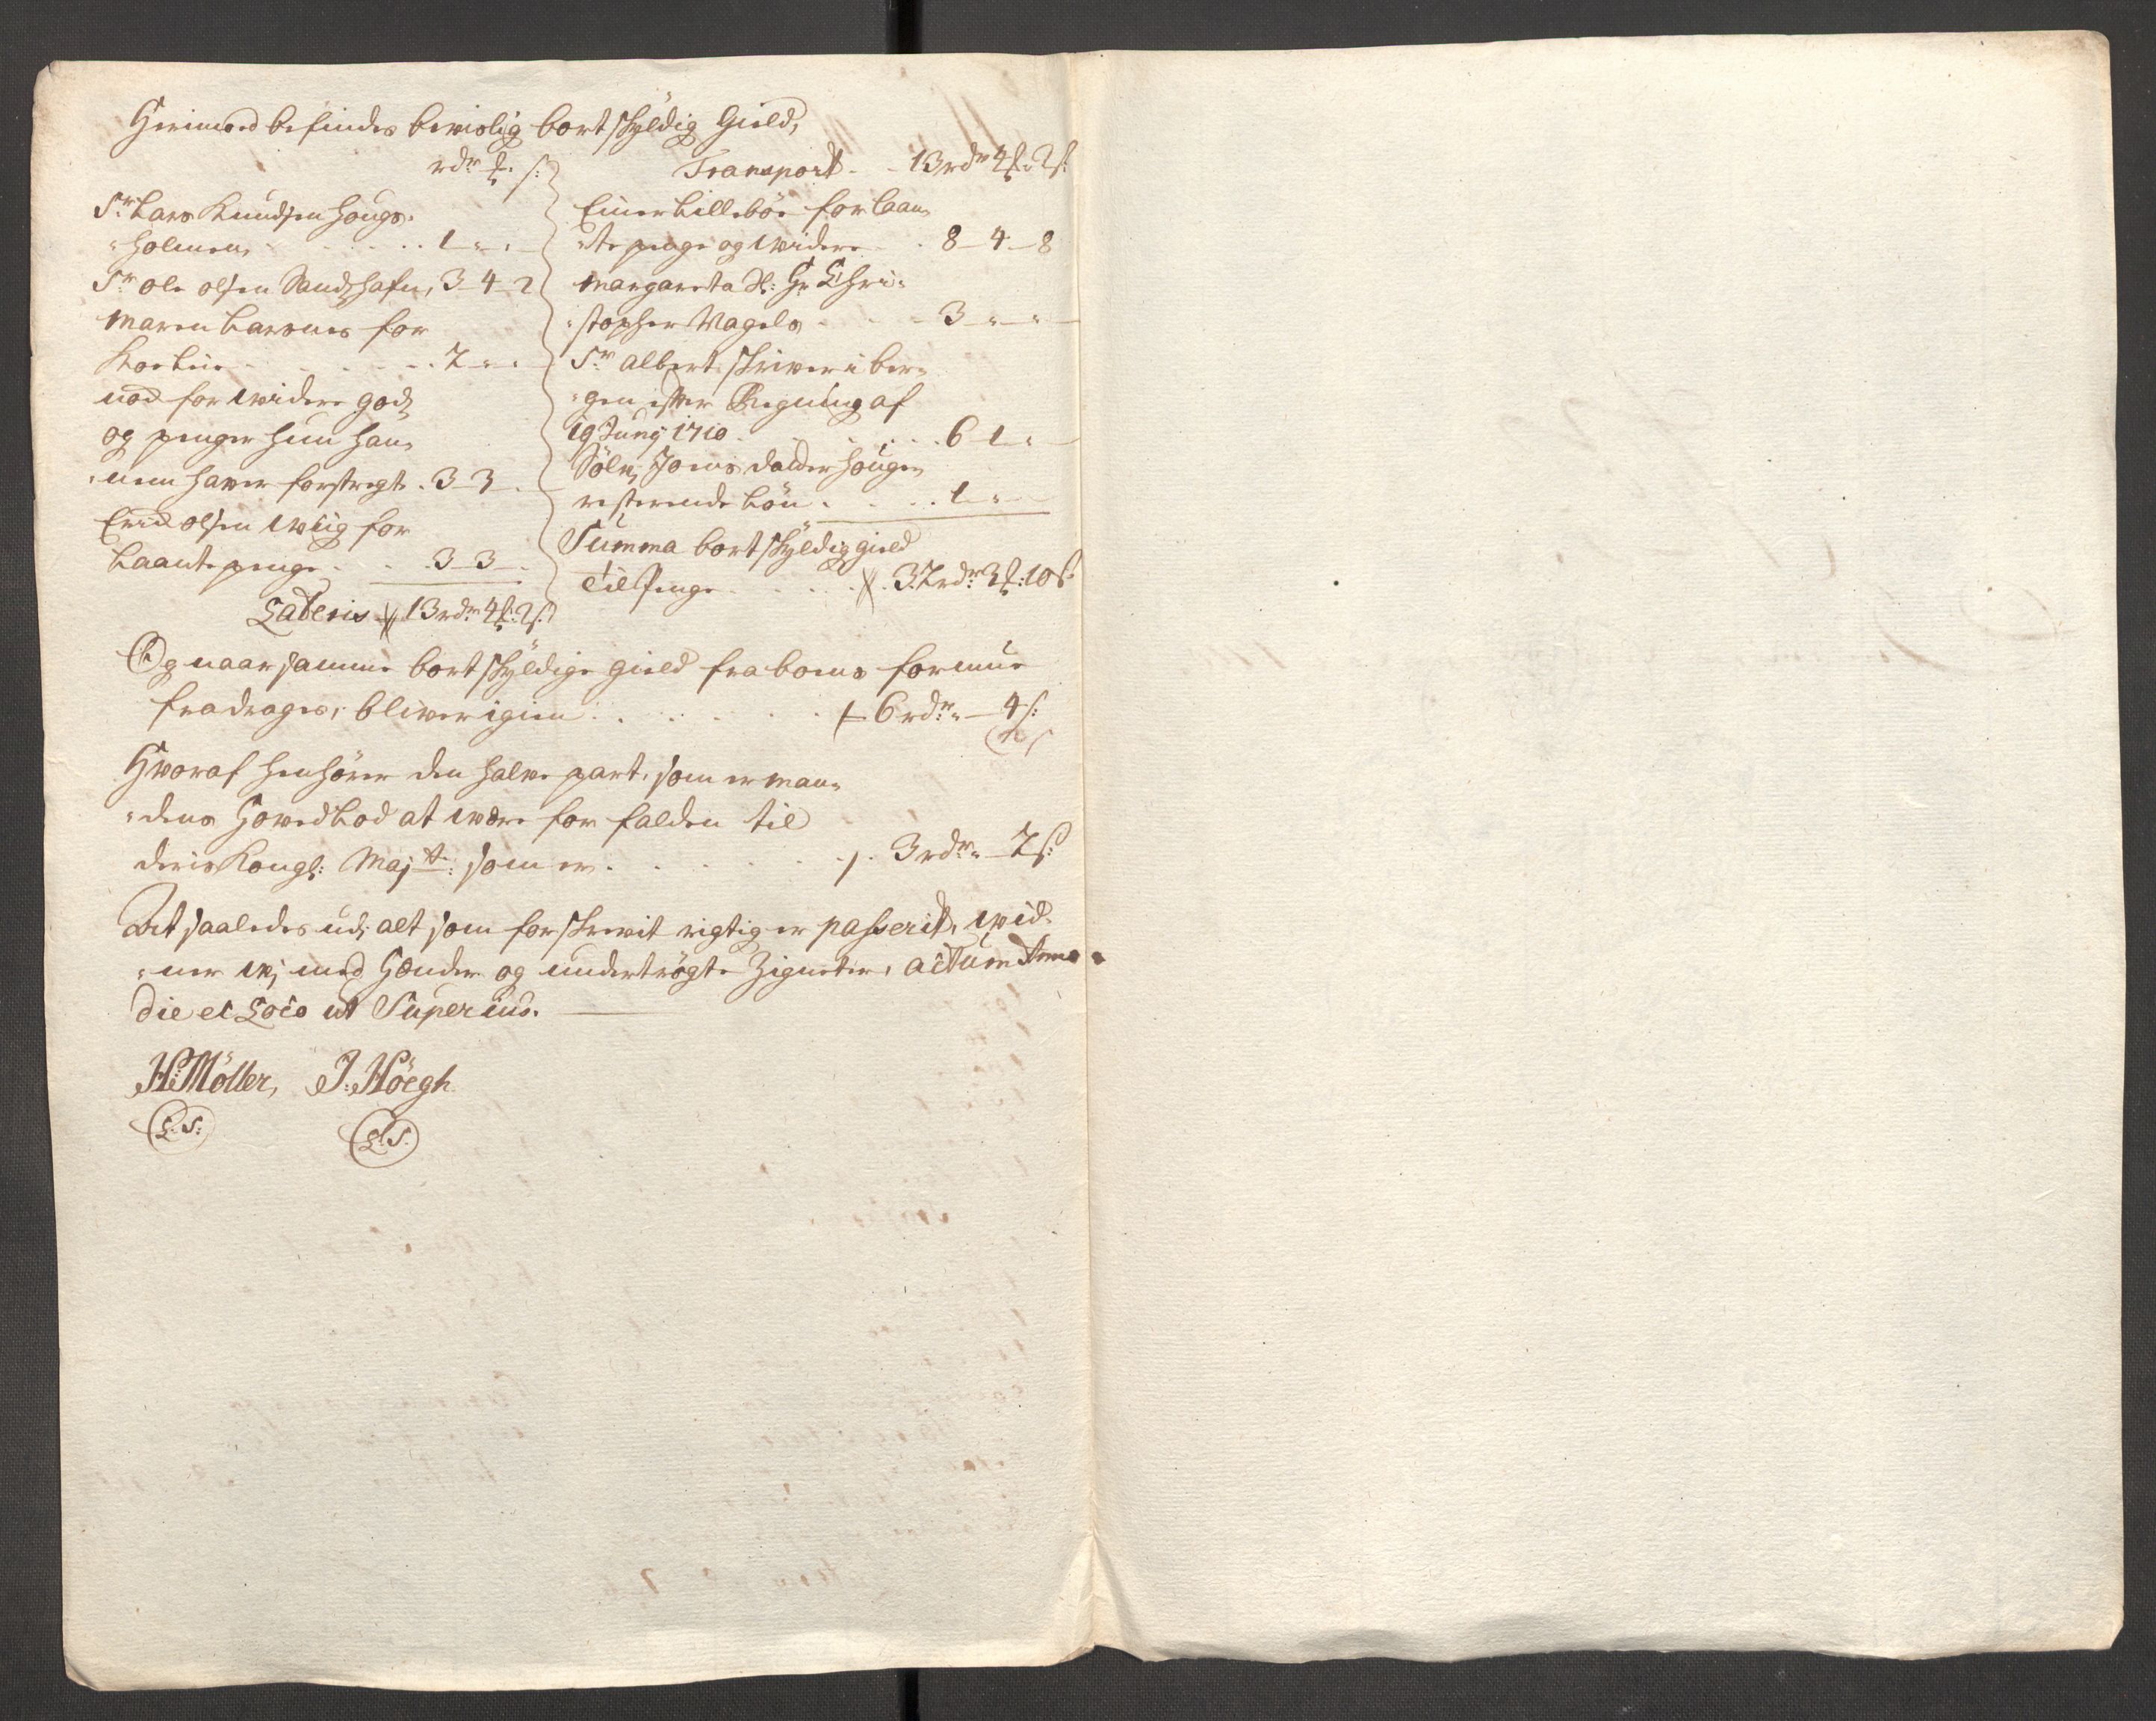 Herimod befindes bevislig bortskÿldig Gield,
rdr ₰. s:
Sr: Lars Knudsen Hougs-
"holmen, . . . . . 1 - " - "
Sr ole olsen Sandshafn, 3 - 4 - 2
Maren Larsens for
Koe Leie . . . . . 2 - " - "
nod for widere gods
og penger hun han-
"nem haver forstregt . 3 - 3 - .
Erich olsen Wiig for
Laante penge . . . 3 - 3 - .
Lateris 13 rdr 4 ₰: 2 s:
Transport - - 13 rdr 4 ₰: 2 s:
Einer Lillebøe for Laan-
"te penge og widere . . 8 - 4 - 8
Margareta Sl: Hr Chri-
"stopher Nagels . . . 3 - " - "
Sr albert skriver i Ber-
"gen efter Regning af
19 Junij 1710 . . . . 6 - 1 - "
Sølv, Joens daatter Hougen
resterende Løn . . . . 1 - "
Summa bortskÿldig gield
Til Penge . . . . . 32 rdr: 3 ₰: 10 s:
Og naar samme bortskÿldige gield fra boens formue
fradrages, bliver igien . . . . . 6 rdr: " - 4 s:
Hvoraf henhører den halve part, som er man-
"dens Hovedlod at være forfalden til
deris Kongl: Majtt: som er . . . . . 3 rdr: " - 2 s:
Det saaledes udj alt som forskrevit rigtig er passerit, wid-
"ner wj med Hænder og undertrøgte Zigneter, actum Anno
Die et Loco ut Superius.
H: Möller, J: Höegh
L: S: L: S: